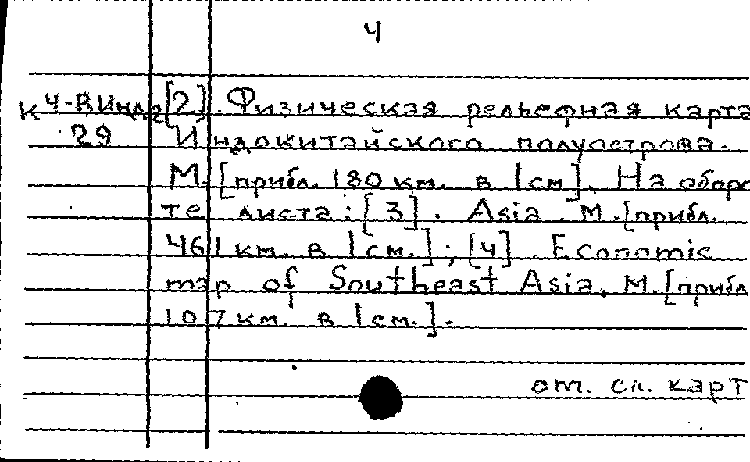 4
К 4-В.Инд2 [2]. Физическая рельефная карта
29 Индокитайского полуострова.
М. [прибл. 180 км. в 1 см]. На оборо
те листа: [3]. Asia. М. [прибл.
461 км. в 1 см.]; [4]. Economic
map of Southeast Asia. М. [прибл
107 км. в 1 см.].
от. сл. карт